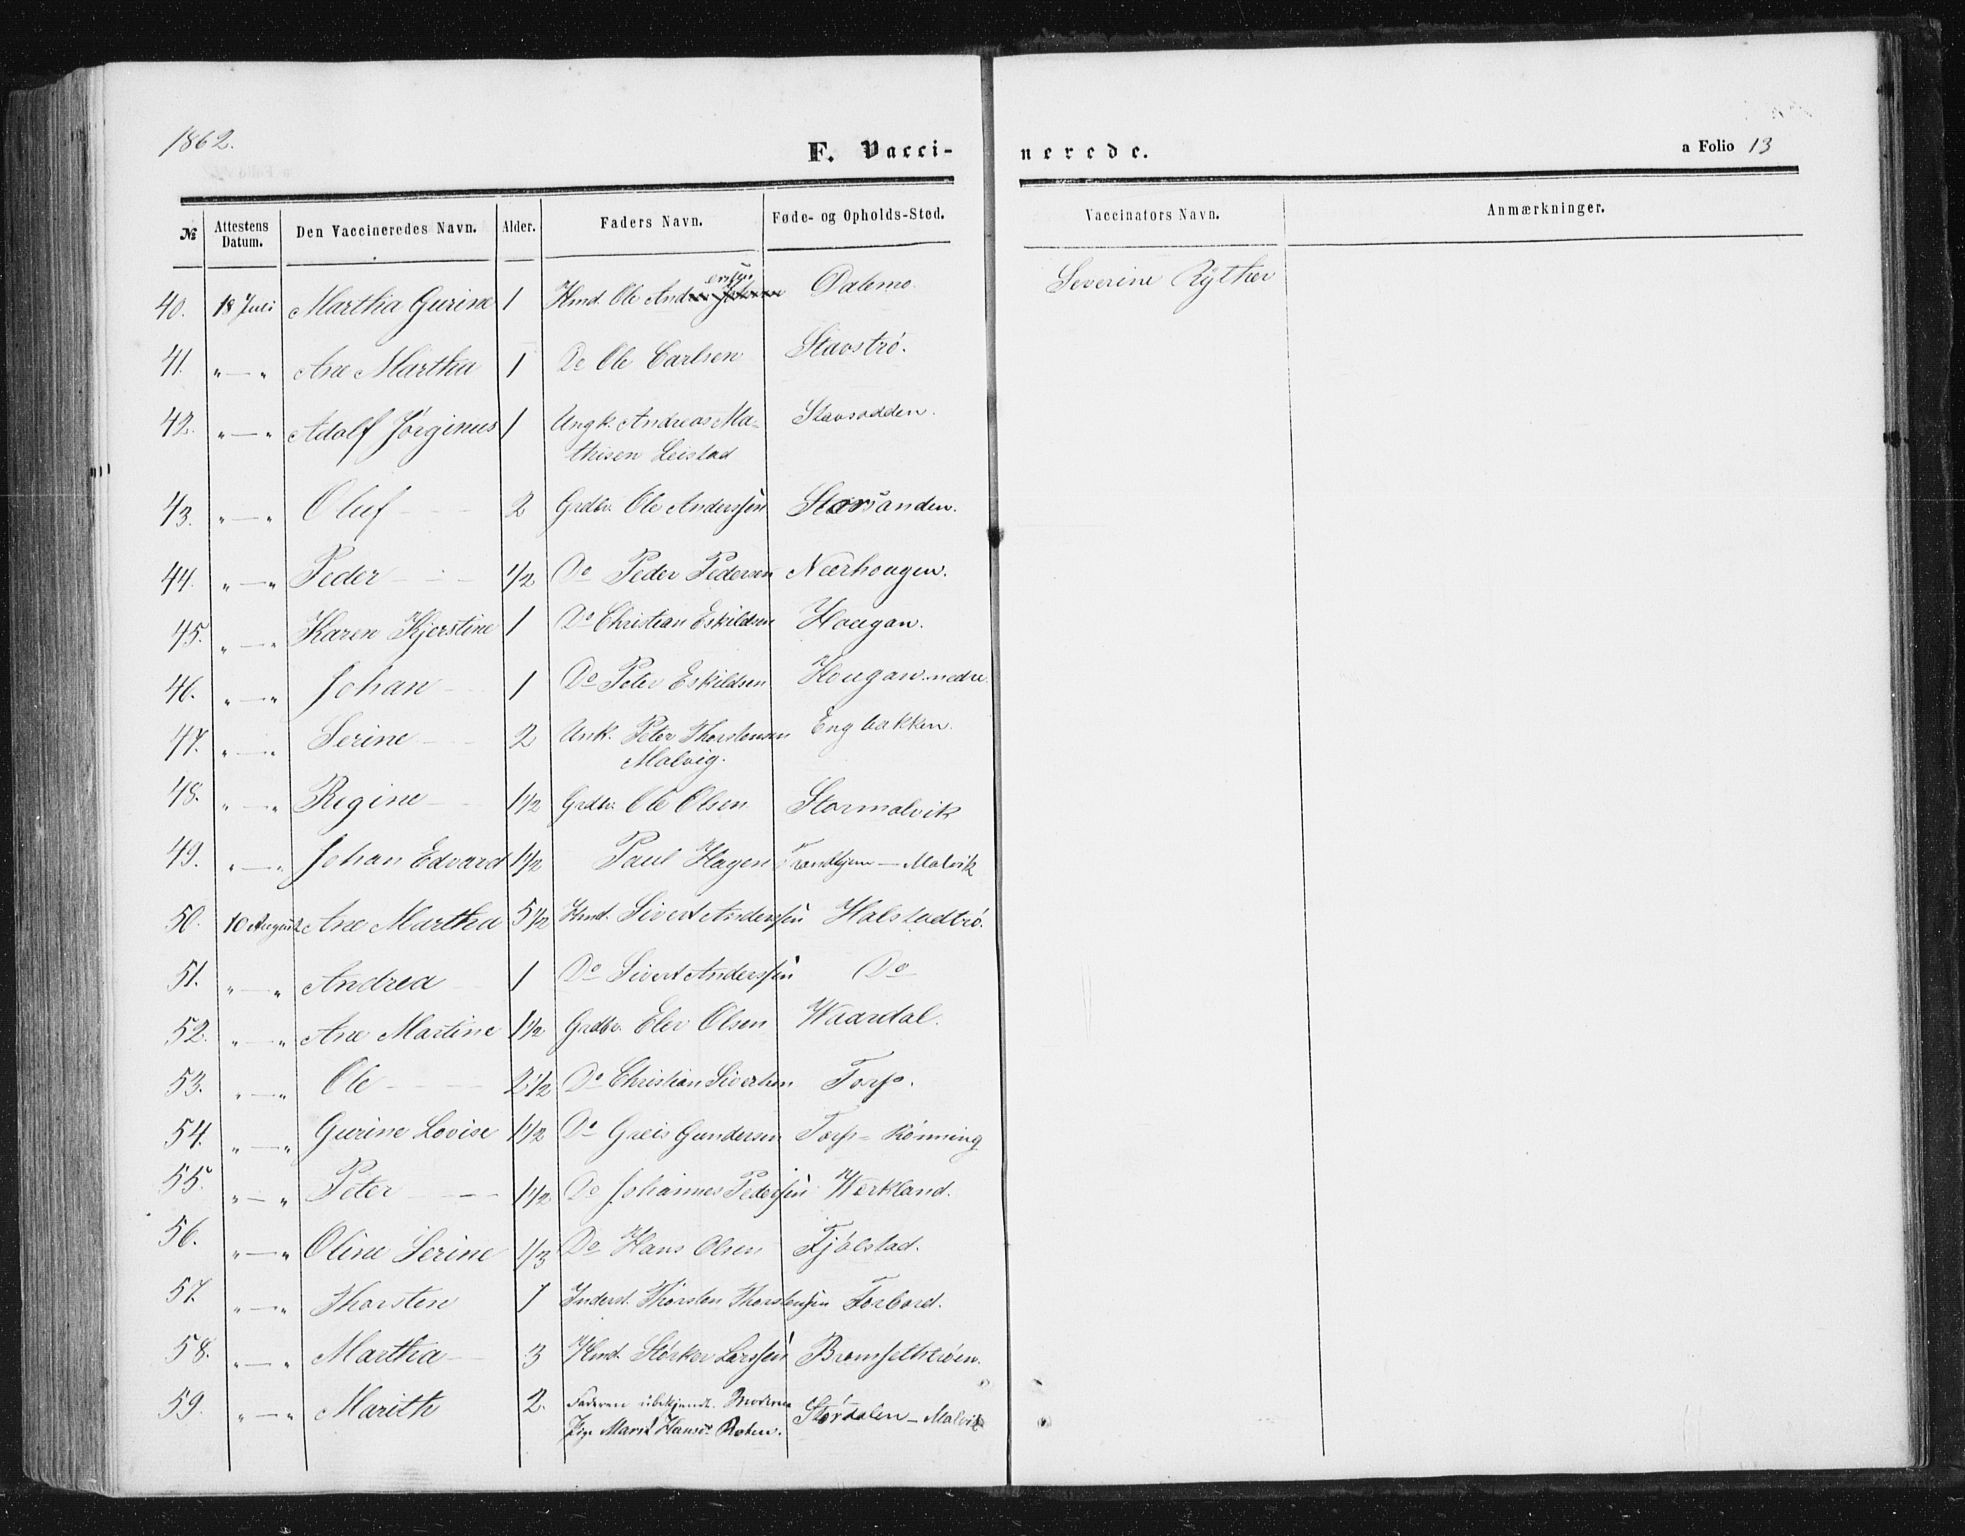 1862.
F. Vacci-
nerede.
a Folio 13
№ Attestens Datum. Den Vaccineredes Navn. Alder. Faders Navn. Føde- og Opholds-Sted. Vaccinators Navn. Anmærkninger.
40. 18 Juli Martha Gurine 1 Hmd. Ole Andersen Dalemo. Severine Rÿther
41. " — " Ane Martha 1 Do Ole Carlsen Stavstrø.
42. " — " Adolf Jørginus 1 Ungk. Andreas Ma-
thisen Leistad Stavsodden.
43. " — " Oluf 2 Grdbr. Ole Anderssen Storsanden.
44. " — " Peder 1/2 Do Peder Pedersen Nærhougen.
45. " — " Karen Kjerstine 1 Do Christian Eskildsen Hougan.
46. " — " Johan 1 Do Peter Eskildsen Hougan nedre.
47. " — " Serine 2 Unk. Peter Thorstensen Engbakken.
Malvig.
48. " — " Regine 1 1/2 Grdbr. Ole Olsen Stormalvik
49. " — " Johan Edvard 1 1/2 Paul Hagen Trondhjem — Malvik
50. 10 August Ane Martha 5 1/2 Hmd. Sivert Anderssen Halstadtrø.
51. " — " Andrea 1 Do Sivert Anderssen Do
52. " — " Ane Martine 1 1/2 Grdbr. Elev Olsen Waardal.
53. " — " Ole 2 1/2 Do Christian Sivertsen Torp.
54. " — " Gurine Lovise 1 1/2 Do Greis Gundersen Torp = Rønning
55. " — " Peter 1 1/2 Do Johannes Pederssen Werkland.
56. " — " Oline Serine 1/3 Do Hans Olsen Fjølstad.
57. " — " Thorsten 1 Inderst. Thorsten Thorstenssen Forbord.
58. " — " Martha 3 Hmd. Størker Larssen Bromseltrøen.
59. " — " Marith 2. Faderen ubekjendt. Moderen Størdalen — Malvik
Pige Marit Hansd. Roten.